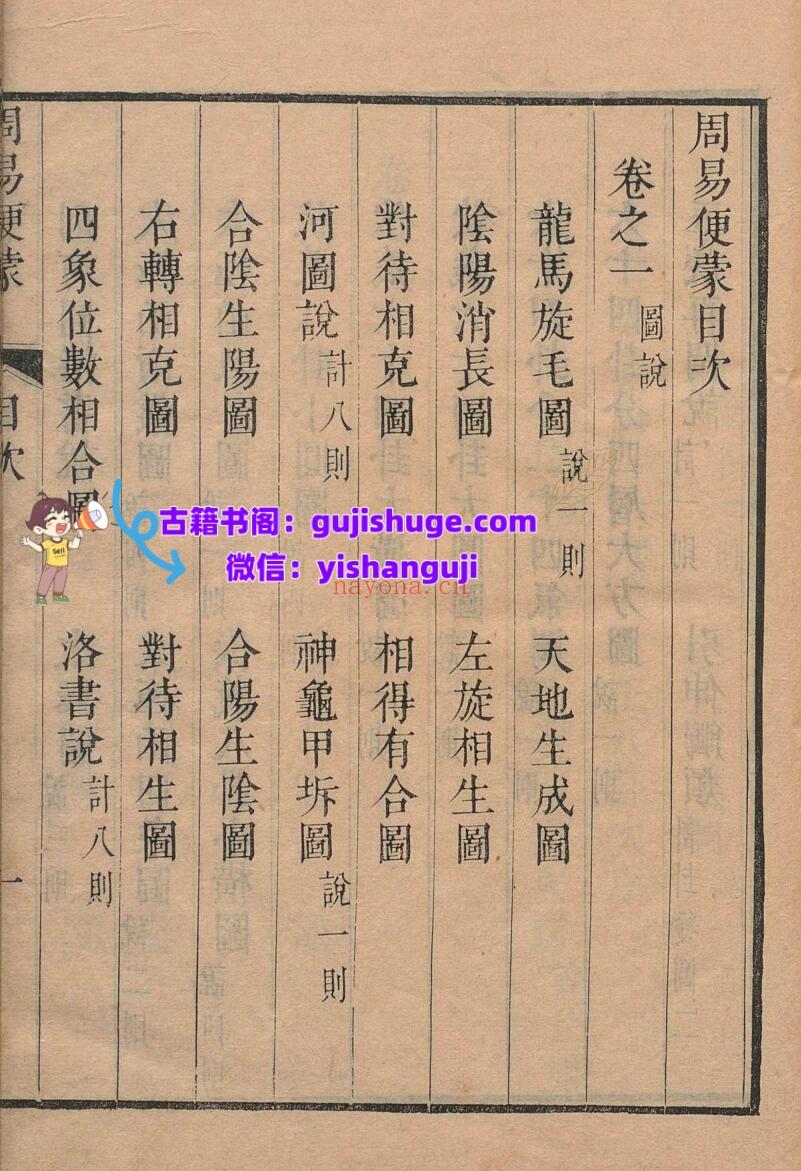 周易便蒙目次
卷之一 圖説
龍馬旋毛圖 説一則 天地生成圖
陰陽消長圖 左旋相生圖
對待相克圖 相得有合圖
河圖說 計八則 神龜甲坼圖 說一則
合陰生陽圖 合陽生陰圖
右轉相克圖 對待相生圖
四象位數相合圖 洛書說 計八則
周易便蒙 目次 一
古籍书阁：gujishuge.com
微信：yishanguji
nayona.cn
Sell